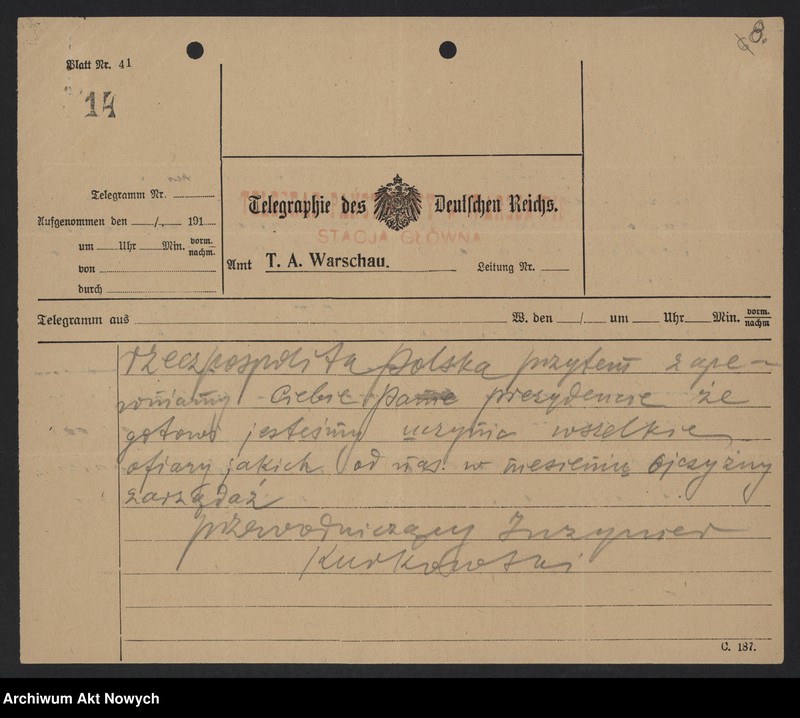 8.
Blatt Nr. 41
14
Telegramm Nr.
Aufgenommen den / . 191
um Uhr Min. vorm. nachm.
von
durch
Telegraphie des Deutschen Reichs.
STACJA GŁÓWNA
Amt T. A. Warschau. Leitung Nr.
Telegramm aus W. den / um Uhr Min. vorm. nachm
rzeczpospolita Polska przytem zape-
wniamy Ciebie Panie prezydencie że
gotowi jesteśmy uczynić wszelkie
ofiary jakich od nas w imieniu ojczyzny
zarządasz
przewodniczący Inzynier
Kurkowski
C. 187.
Archiwum Akt Nowych